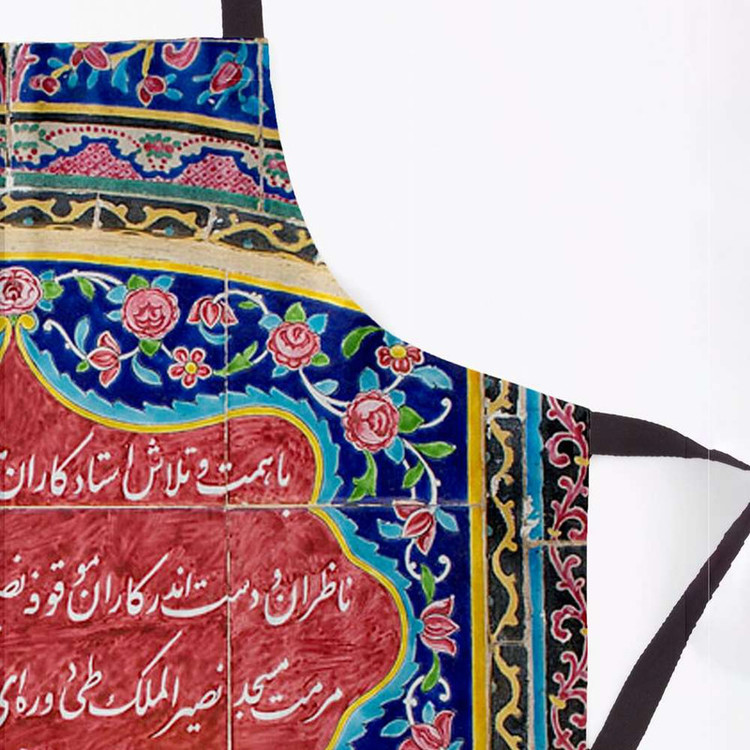 با همت و تلاش استادکاران
ناظران و دست اندرکاران موقوفه
مرمت مسجد نصیرالملک طی دوره‌ای